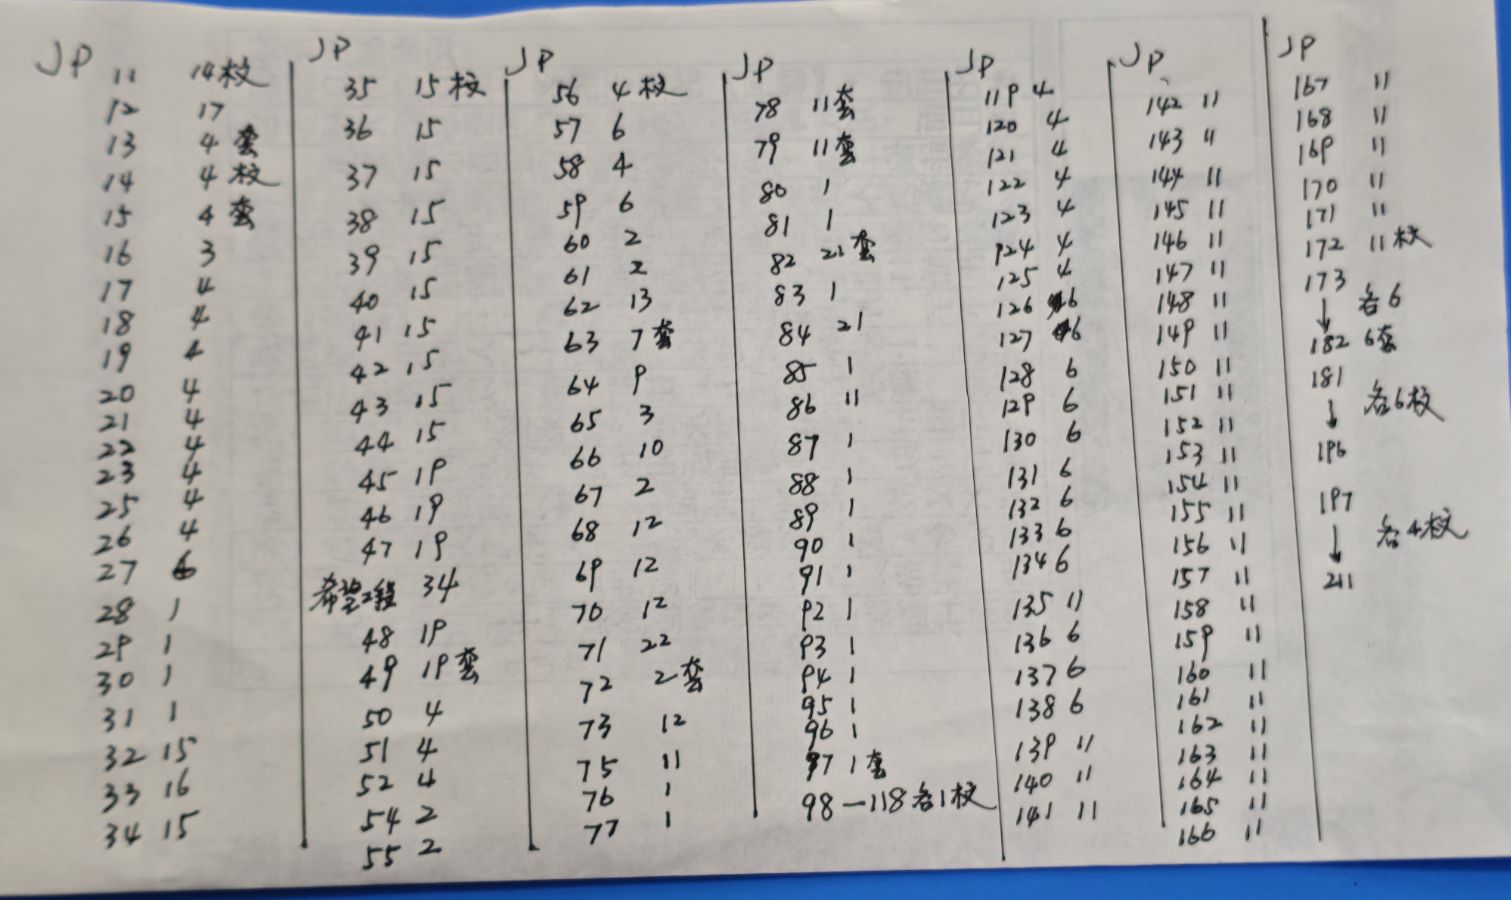 JP
11 14枚
12 17
13 4套
14 4枚
15 4套
16 3
17 4
18 4
19 4
20 4
21 4
22 4
23 4
25 4
26 4
27 6
28 1
29 1
30 1
31 1
32 15
33 16
34 15
JP
35 15枚
36 15
37 15
38 15
39 15
40 15
41 15
42 15
43 15
44 15
45 19
46 19
47 19
希望工程 34
48 19
49 19套
50 4
51 4
52 4
54 2
55 2
JP
56 4枚
57 6
58 4
59 6
60 2
61 2
62 13
63 7套
64 9
65 3
66 10
67 2
68 12
69 12
70 12
71 22
72 2套
73 12
75 11
76 1
77 1
JP
78 11套
79 11套
80 1
81 1
82 21套
83 1
84 21
85 1
86 11
87 1
88 1
89 1
90 1
91 1
92 1
93 1
94 1
95 1
96 1
97 1套
98—118各1枚
JP
119 4
120 4
121 4
122 4
123 4
124 4
125 4
126 6
127 6
128 6
129 6
130 6
131 6
132 6
133 6
134 6
135 11
136 6
137 6
138 6
139 11
140 11
141 11
JP
142 11
143 11
144 11
145 11
146 11
147 11
148 11
149 11
150 11
151 11
152 11
153 11
154 11
155 11
156 11
157 11
158 11
159 11
160 11
161 11
162 11
163 11
164 11
165 11
166 11
JP
167 11
168 11
169 11
170 11
171 11
172 11枚
173
↓ 各6
182 6套
181
↓ 各6枚
196
197
↓ 各4枚
211